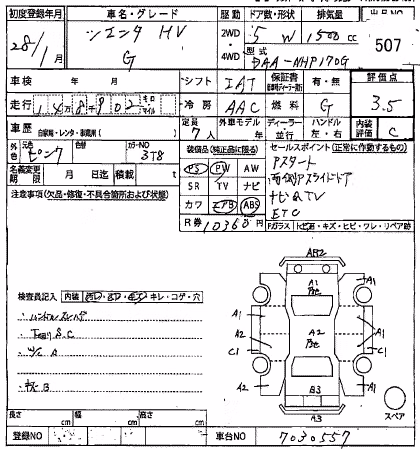 初度登録年月 車名・グレード 駆動 ドア数・形状 排気量 出品NO
28/1月 シエンタ HV 2WD 5 W 1500 cc 507
G 4WD 型式 DAA-NHP170G
車検 年 月 シフト IAT 保証書 有・無 評価点
走行 148902 キロ マイル 冷房 AAC 燃料 G 3.5
車歴 自家用・レンタ・事業用( ) 定員 7人 外車モデル 年 ディーラー 並行 ハンドル 左・右 内装評価 C
外色 元色 ピンク 色替 カラーNO 3T8
名義変更期限 月 日迄 積載 t
装備品(純正品に限る)
PS PW AW
SR TV ナビ
カワ エアB ABS
R券 10360円
セールスポイント(正常に作動するもの)
Aスタート
両側Aスライドドア
ナビ&TV
ETC
Fガラス トビ石・キズ・ヒビ・ワレ・リペア跡
注意事項(欠品・修復・不具合箇所および状態)
検査員記入 内装 キレ・コゲ・穴
S.C
A
B
AR2
A1
A1
A1
A2
A2
C1
C1
A2
A1
B3
A3
スペア
長さ cm 幅 cm 高さ cm
登録NO 車台NO 7030557